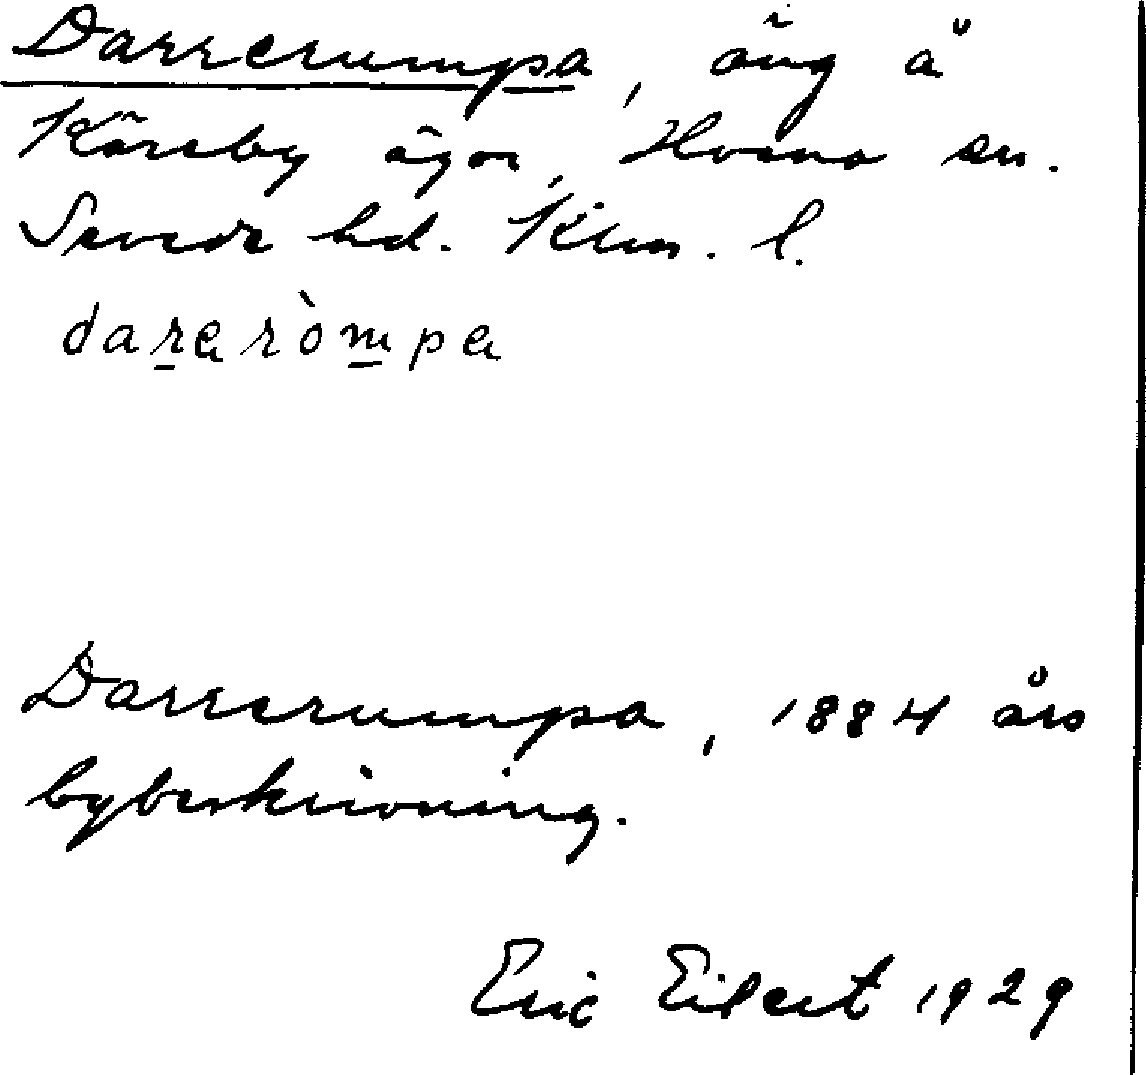 Darrerumpa, äng å
Kärsby ägor, Horna sn.
Sevede hd. Klm. l.
darɐròmpa
Darrerumpa, 1884 års
bybeskrivning.
Eric Eilert 1929